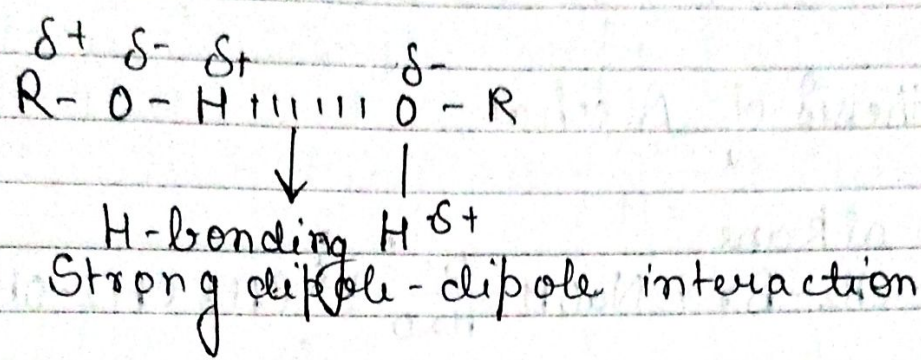 δ+ δ- δ+ δ-
R - O - H ıııııı O - R
H-bonding H δ+
Strong dipole-dipole interaction